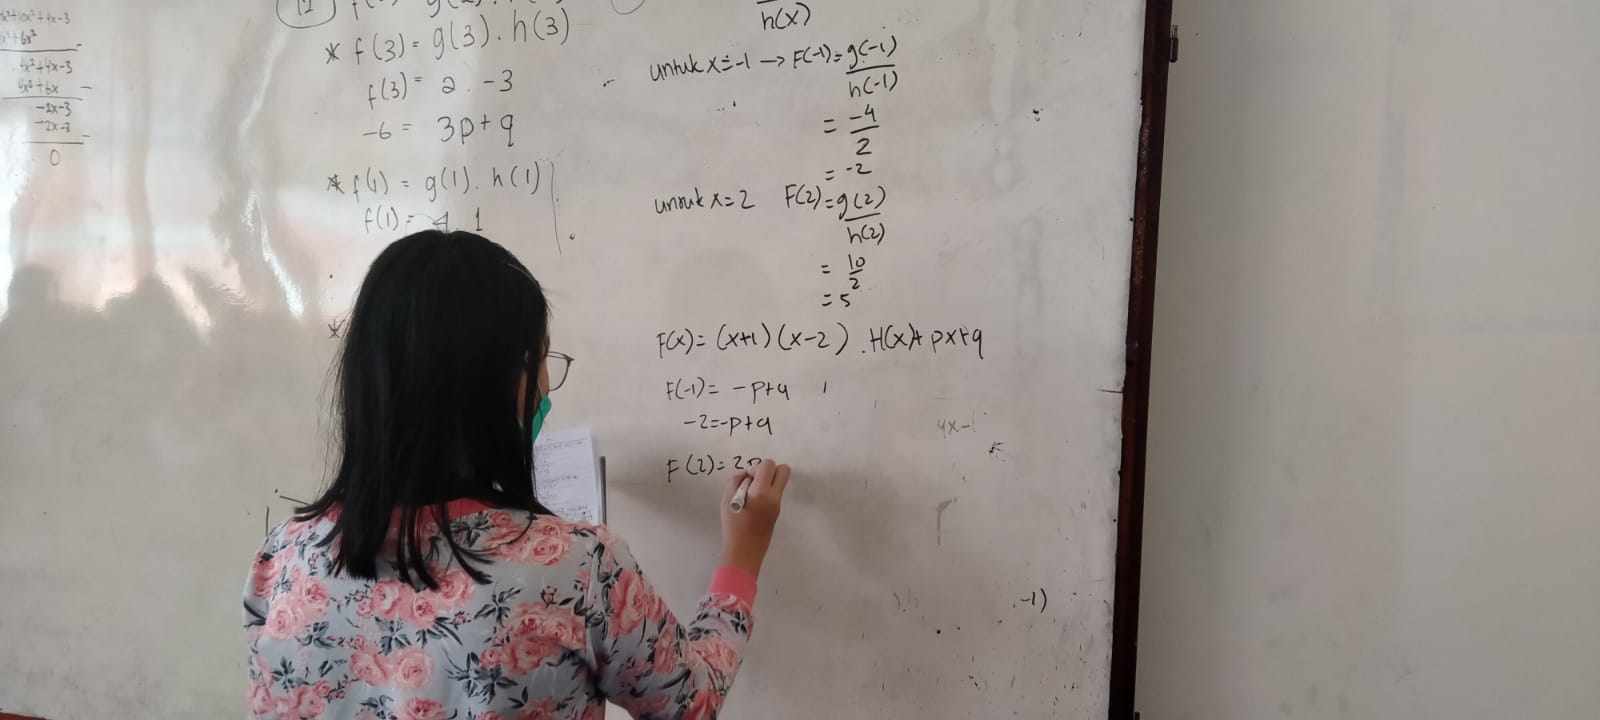 +10x²+4x-3
+6x²
4x²+4x-3
4x²+6x
-2x-3
-2x-3
0
12
* f(3) = g(3) . h(3)
f(3) = 2 . -3
-6 = 3p+q
* f(1) = g(1) . h(1)
f(1) = 4 . 1
*
h(x)
untuk x=-1 → F(-1) = g(-1)
h(-1)
= -4
2
= -2
untuk x=2 F(2) = g(2)
h(2)
= 10
2
= 5
F(x) = (x+1)(x-2) . H(x)+ px+q
F(-1) = -p+q
-2=-p+q
F(2) = 2p
4x-
-1)